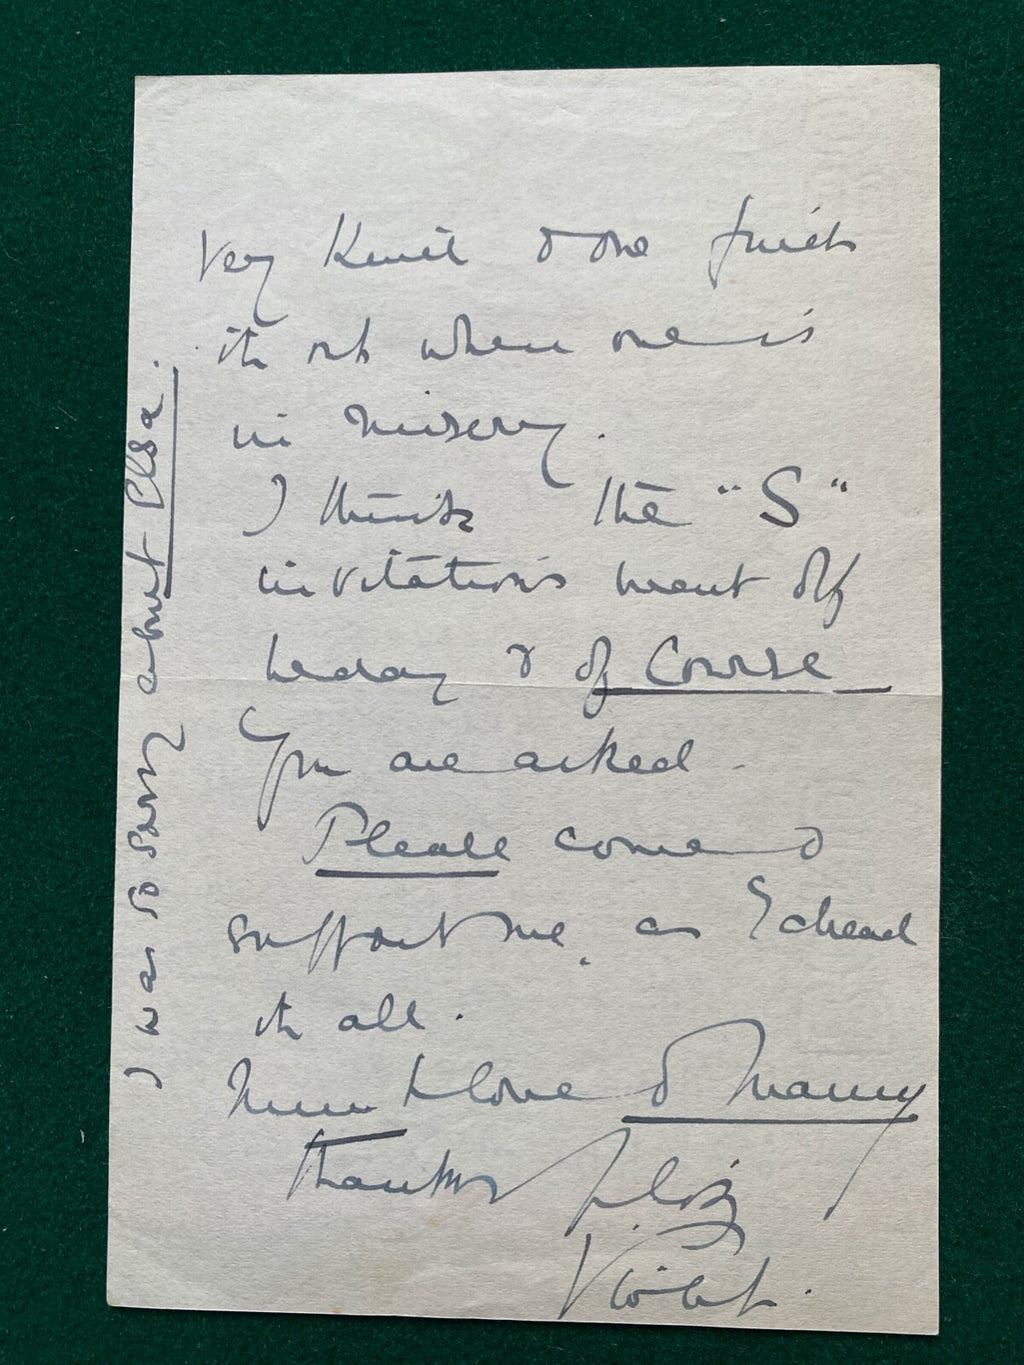 very kind & one finds
it not when one is
in misery.
I think the "S"
invitations went off
today & of course
you are asked.
Please come &
support me, as I dread
it all.
love & many
thanks
Violet.
I was so sorry about Elsa.